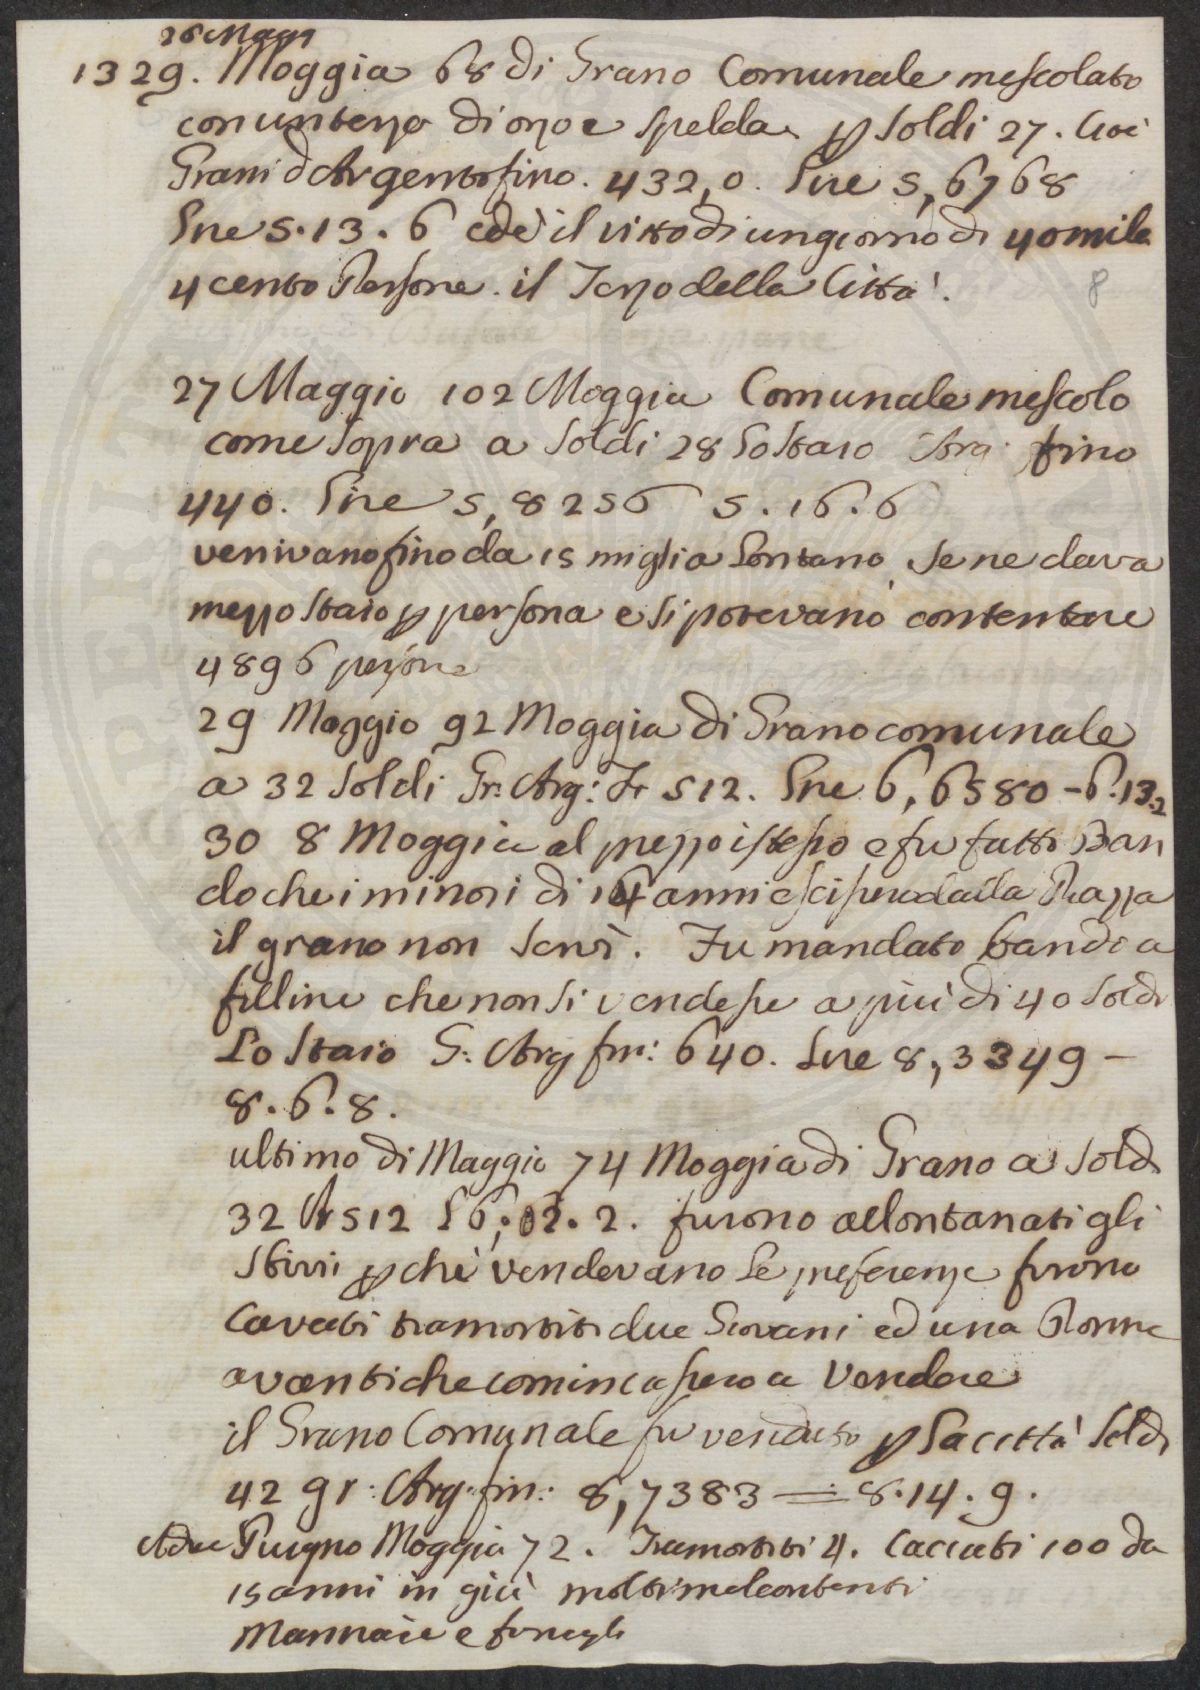 26 Magg
1329. Moggia 68 di Grano Comunale mescolato
con un terzo di orzo e spelda p soldi 27. Cioè
Grani d'Argento fino. 432,0. Lire 5,6768
Lire 5.13.6 ed è il vitto di un giorno di 40 mila
4 cento Persone. il Terzo della Città.
8
27 Maggio 102 Moggia Comunale mescolo
come sopra a soldi 28 Lo staio Arg: fino
440. Lire 5,8256 5.16.6
venivano fino da 15 miglia Lontano, se ne dava
mezzo staio p persona e si potevano contentare
4896 persone
29 Maggio 92 Moggia di Grano comunale
a 32 soldi Gr: Arg: F 512. Lire 6,6580 - 6.13.2
30 8 Moggia al prezzo istesso e fu fatto Ban
do che i minori di 14 anni escissero dalla Piazza
il grano non servì. Fu mandato bando a
filline che non si vendesse a più di 40 soldi
Lo staio G: Arg fin: 640. Lire 8,3349 -
8.6.8.
ultimo di Maggio 74 Moggia di Grano a soldi
32 Ar 512 L 6, 13. 2. furono allontanati gli
sbirri p chè vendevano Le preferenze furono
Cavati tramortiti due Giovani ed una Donna
avanti che cominciassero a Vendere
il Grano Comunale fu venduto p La città soldi
42 gr: Arg: fin: 8,7383 = 8.14.9.
Adue Giugno Moggia 72. Tramortiti 4. Cacciati 100 da
15 anni in giù molti malcontenti
Mannaie e